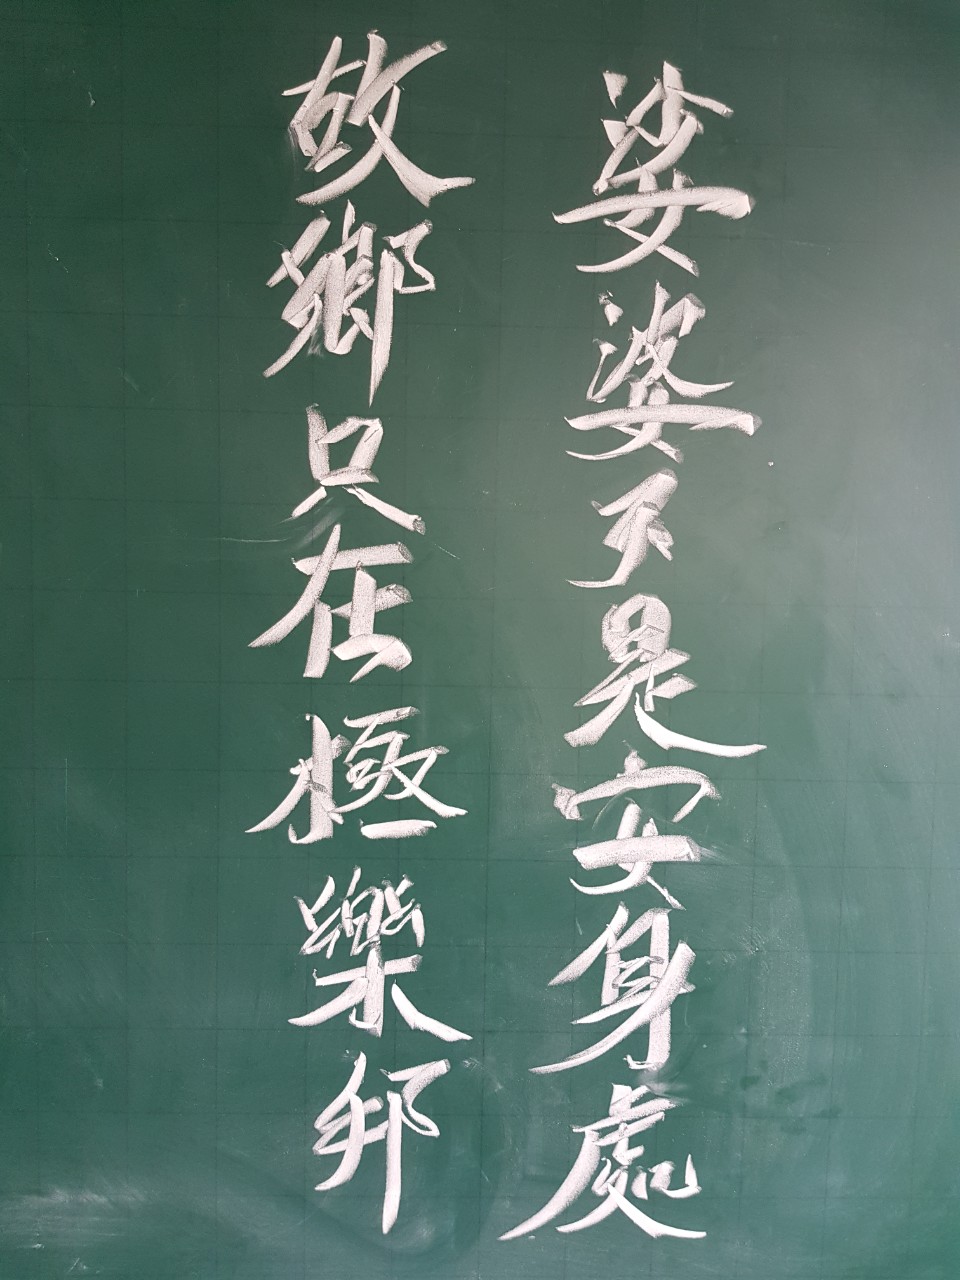 娑婆不是安身處
故鄉只在極樂邦